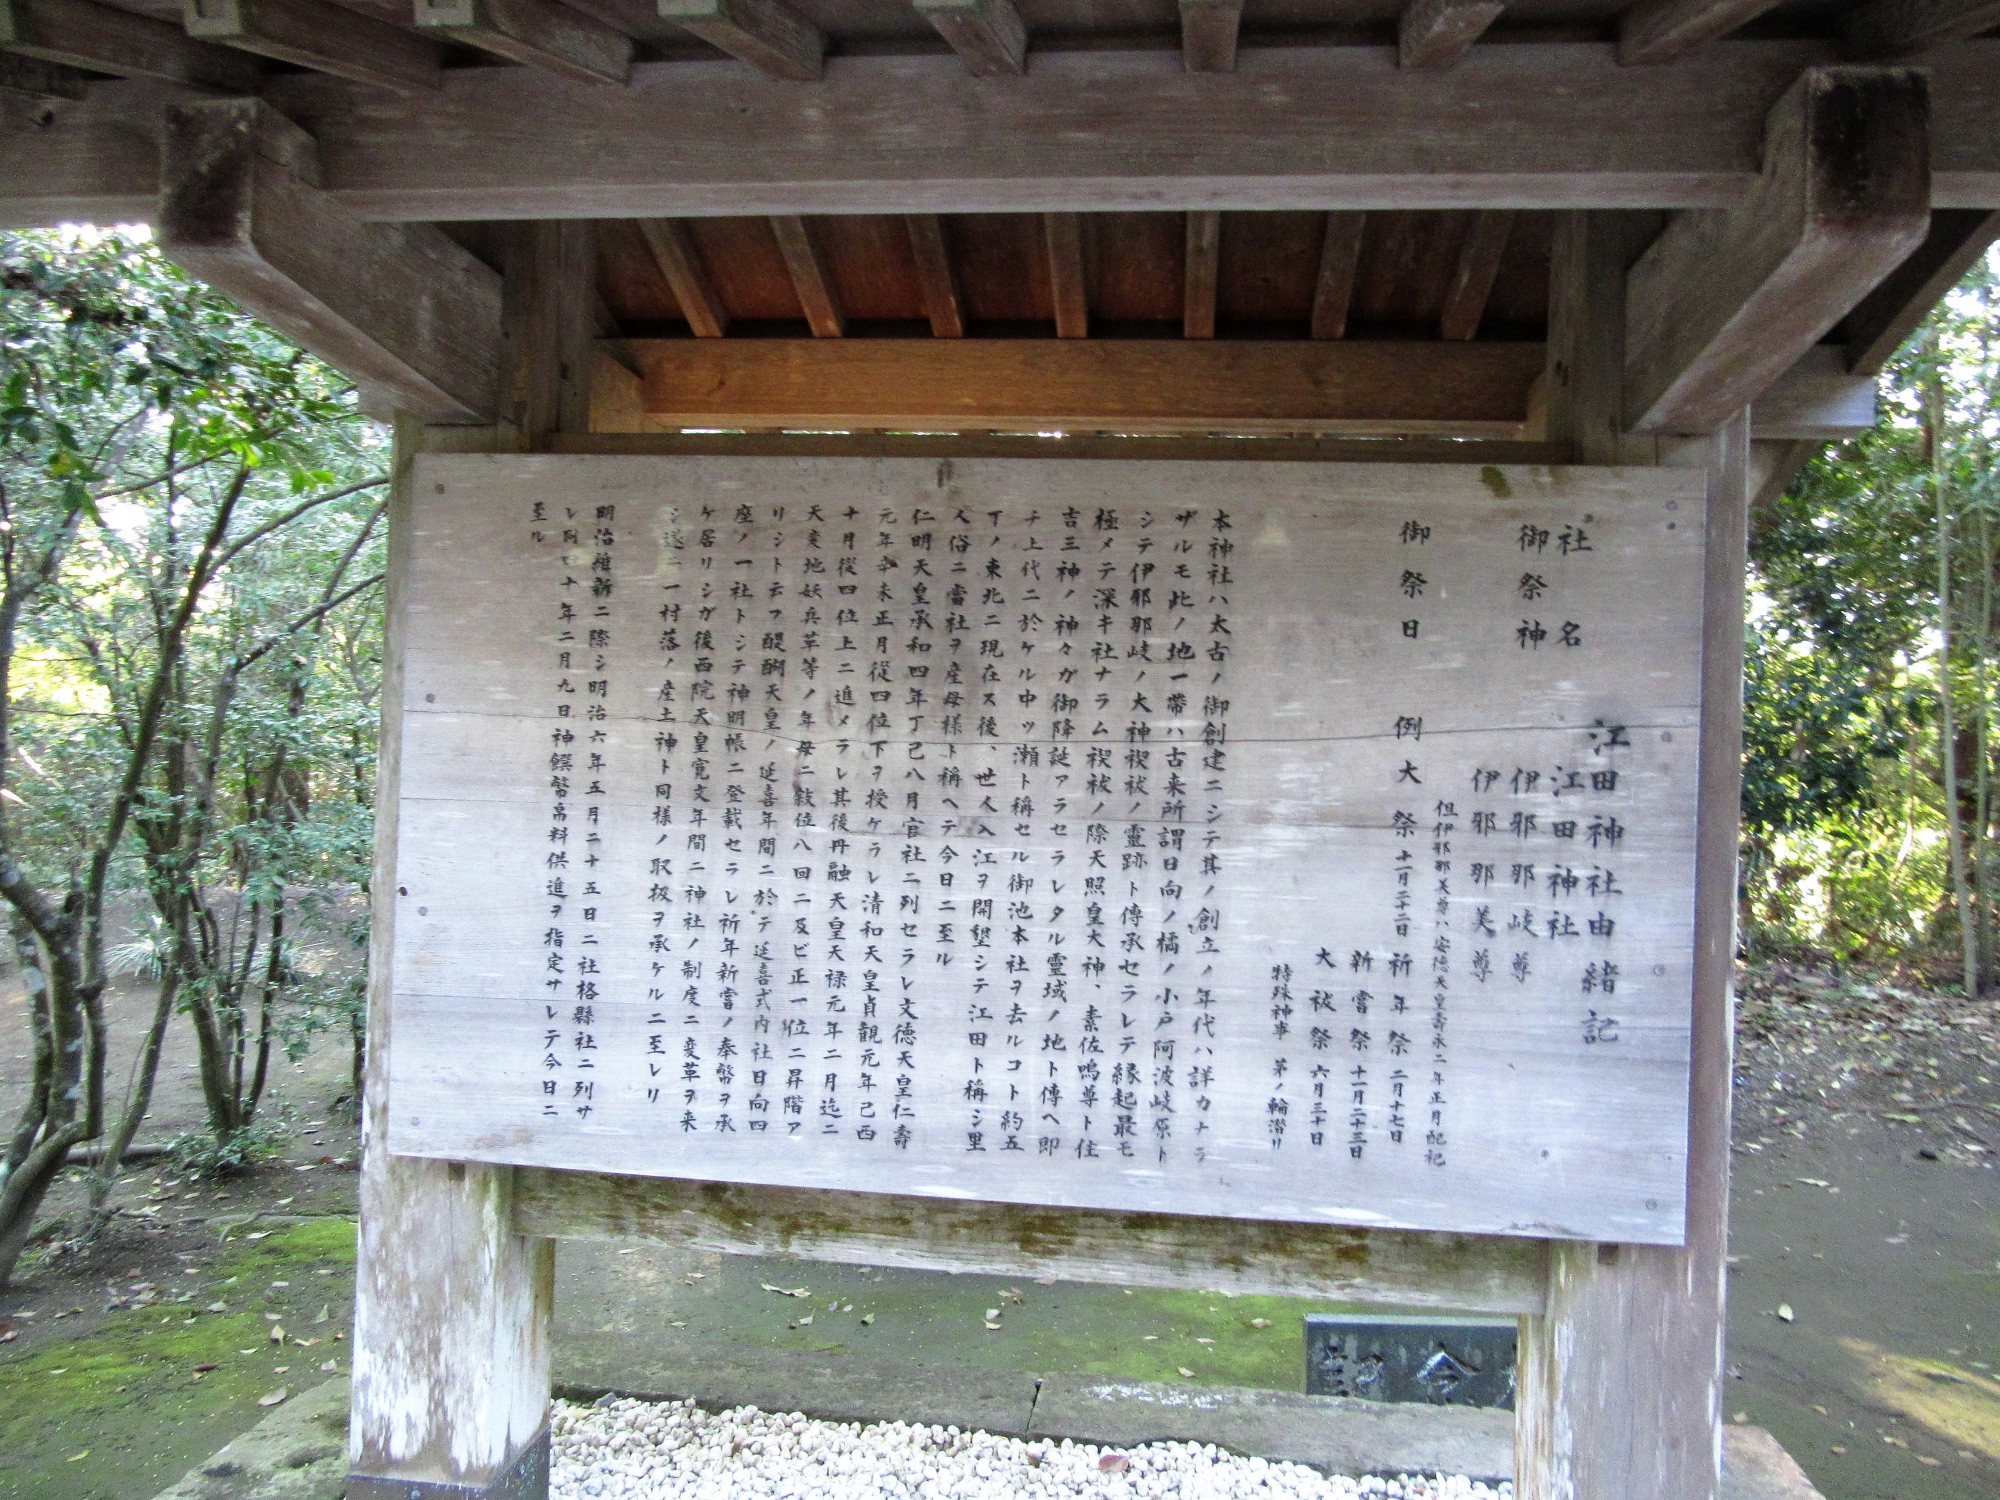 江田神社由緒記
社名 江田神社
御祭神 伊邪那岐尊
伊邪那美尊
但伊邪那美尊ハ安徳天皇壽永二年正月配祀
御祭日 例大祭 十一月二十二日
祈年祭 二月十七日
新嘗祭 十一月二十三日
大祓祭 六月三十日
特殊神事 茅ノ輪潜リ
本神社ハ太古ノ御創建ニシテ其ノ創立ノ年代ハ詳カナラ
ザルモ此ノ地一帶ハ古来所謂日向ノ橘ノ小戸阿波岐原ト
シテ伊邪那岐ノ大神禊祓ノ靈跡ト傳承セラレテ縁起最モ
極メテ深キ社ナラム禊祓ノ際天照皇大神、素佐嗚尊ト住
吉三神ノ神々ガ御降誕アラセラレタル靈域ノ地ト傳ヘ即
チ上代ニ於ケル中ツ瀬ト稱セル御池本社ヲ去ルコト約五
丁ノ東北ニ現在ス後、世人入江ヲ開墾シテ江田ト稱シ里
人俗ニ當社ヲ産母様ト稱ヘテ今日ニ至ル
仁明天皇承和四年丁己八月官社ニ列セラレ文徳天皇仁壽
元年辛未正月従四位下ヲ授ケラレ清和天皇貞観元年己西
十月従四位上ニ進メラレ其後丹融天皇天禄元年二月迄ニ
天変地妖兵革等ノ年毎ニ敍位八回ニ及ビ正一位ニ昇階ア
リシト云フ醍醐天皇ノ延喜年間ニ於テ延喜式内社日向四
座ノ一社トシテ神明帳ニ登載セラレ祈年新嘗ノ奉幣ヲ承
ケ居リシガ後西院天皇寛文年間ニ神社ノ制度ニ変革ヲ来
シ遂ニ一村落ノ産土神ト同様ノ取扱ヲ承ケルニ至レリ
明治維新ニ際シ明治六年五月二十五日ニ社格縣社ニ列サ
レ同四十年二月九日神饌幣帛料供進ヲ指定サレテ今日ニ
至ル